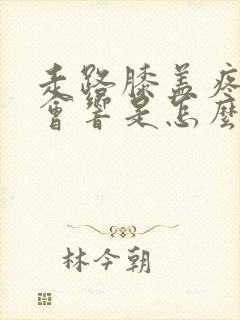 走路膝盖疼
會響是怎麼
林今朝